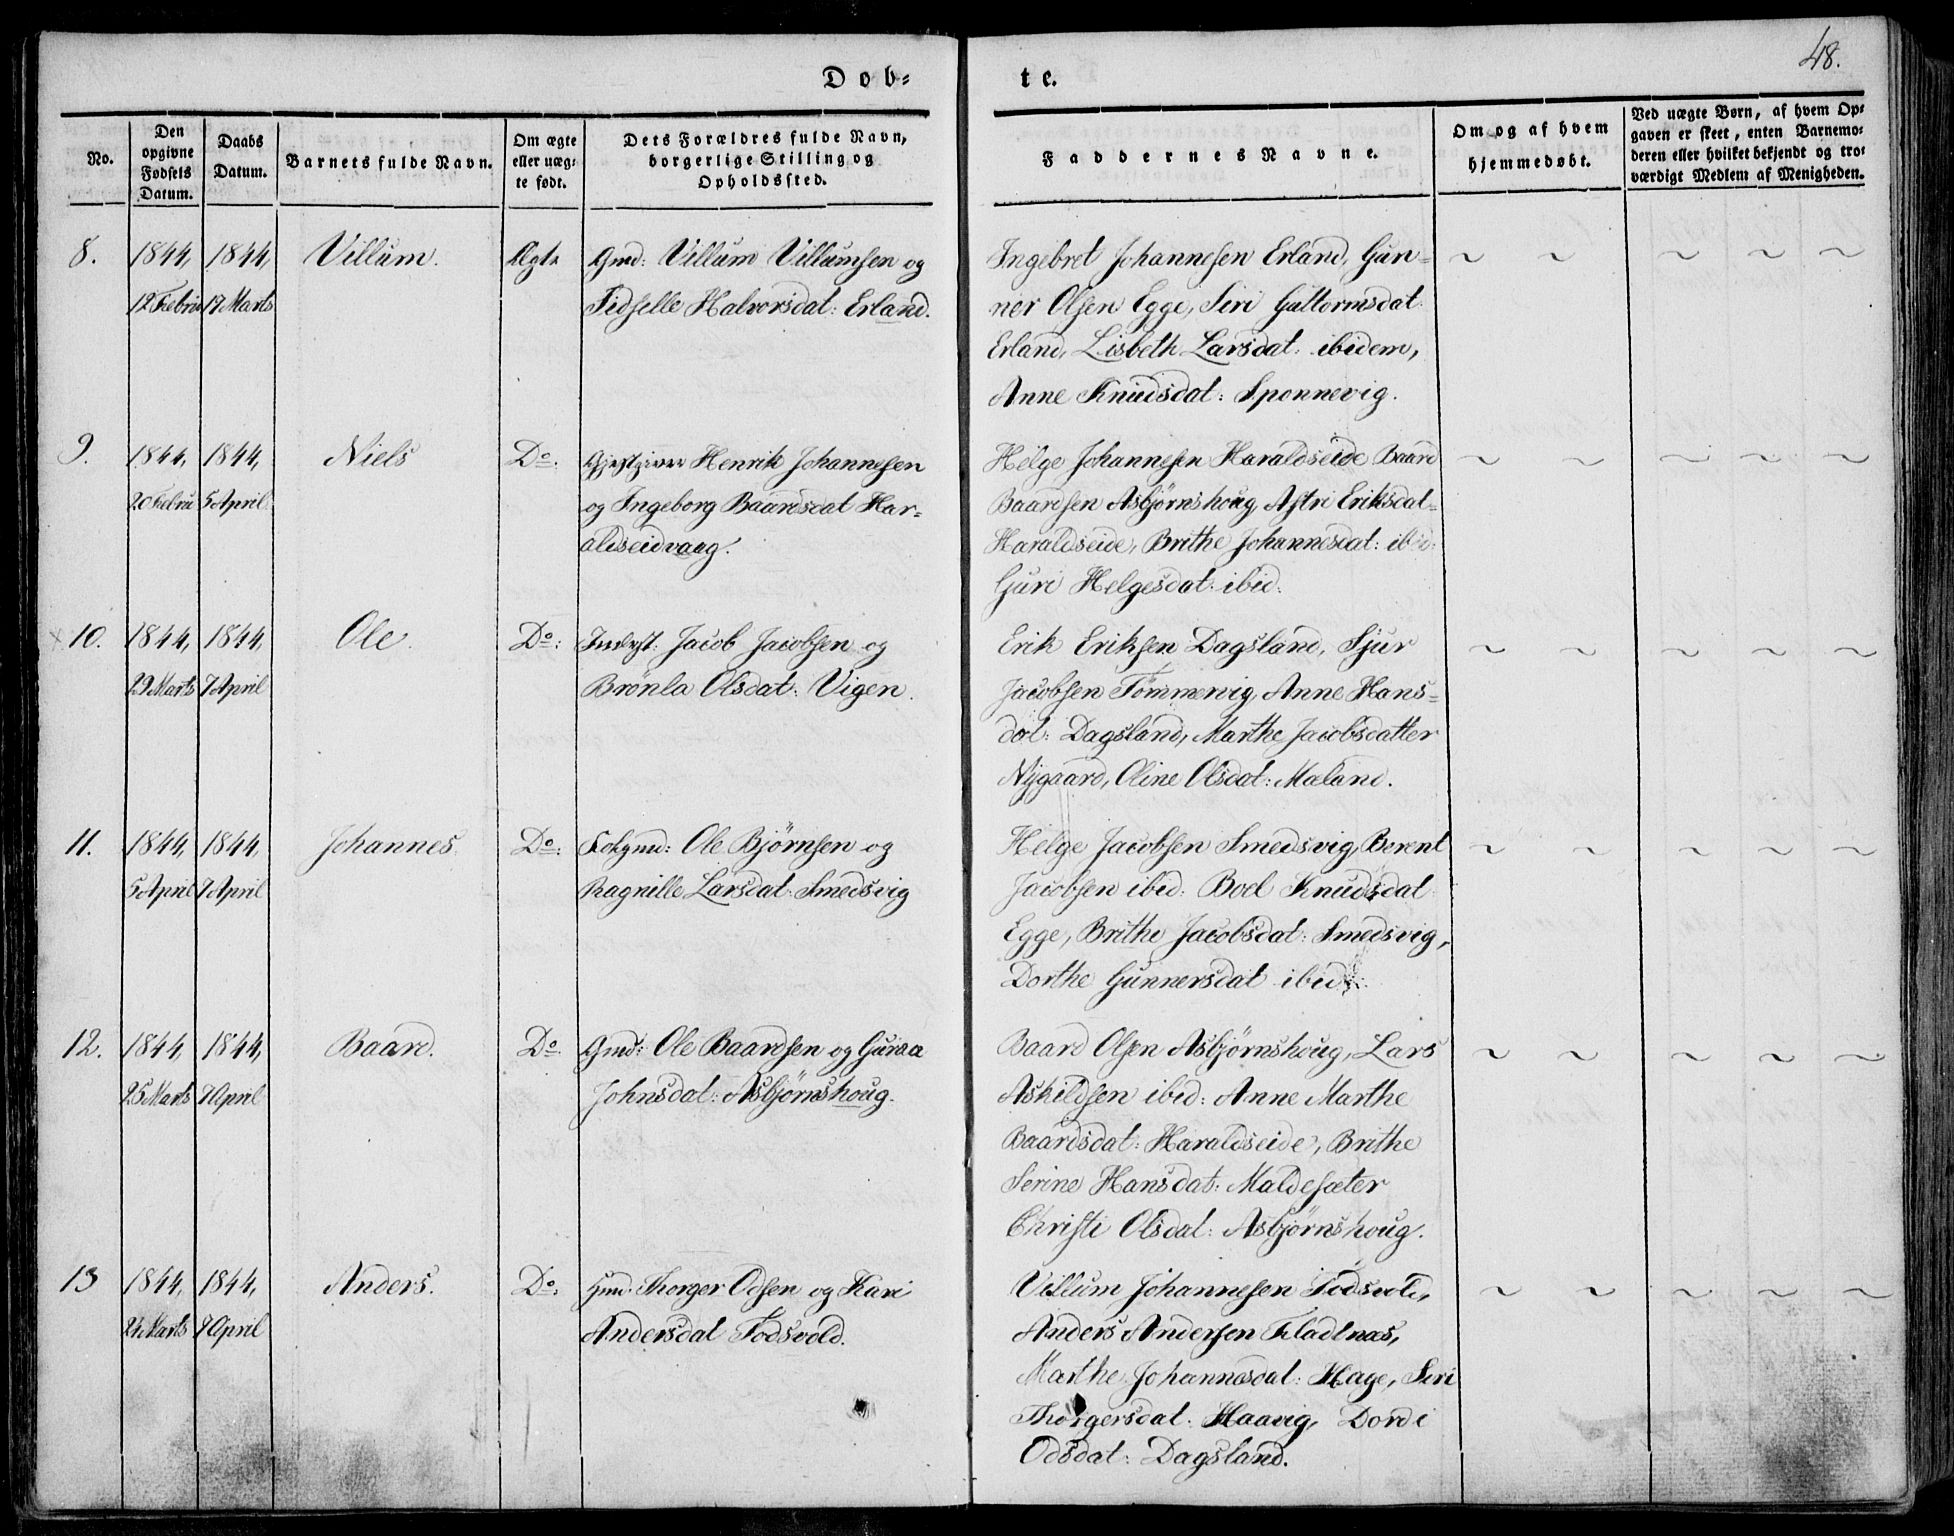 48.
Dob-
te.
No.
Den opgivne Fødsels Datum.
Daabs Datum.
Barnets fulde Navn.
Om ægte eller uægte født.
Dets Forældres fulde Navn, borgerlige Stilling og Opholdssted.
Faddernes Navne.
Om og af hvem hjemmedøbt.
Ved uægte Børn, af hvem Opgaven er skeet, enten Barnemoderen eller hvilket bekjendt og troværdigt Medlem af Menigheden.
8. 1844, 1844, Villum. Ægte Gmd: Villum Villumsen og
12 Februa 17 Marts Tedselle Halvorsdat: Erland.
Ingebret Johannesen Erland, Gun-
ner Olsen Egge, Siri Guttormsdat
Erland, Lisbeth Larsdat: ibidem,
Anne Knudsdat: Sponnevig.
9. 1844, 1844, Niels Do. Gjestgiver Henrik Johannesen
20 Febru 5 April og Ingeborg Baardsdat Har-
aldseidvaag.
Helge Johannesen Haraldseide Baard
Baardsen Asbjørnshoug, Astri Eriksdat-
Haraldseide, Brithe Johannesdat: ibid:
Guri Helgesdat: ibid:
10. 1844, 1844, Ole. Do: Inderst: Jacob Jacobsen og
29 Marts 7 April Brønla Olsdat: Vigen.
Erik Eriksen Dagsland, Sjur
Jacobsen Tømmervig, Anne Hans-
dat: Dagsland, Marthe Jacobsdatter
Nygaard, Oline Olsdat: Maland.
11. 1844, 1844, Johannes Do: Ole Bjørnsen og
5 April 7 April Ragnille Larsdat: Smedsvig
Helge Jacobsen Smedsvig, Berent
Jacobsen ibid: Boel Knudsdat
Egge, Brithe Jacobsdat: Smedsvig,
Dorthe Gunnersdat ibid:
12. 1844, 1844, Baard. Do. Gmd: Ole Baardsen og Guraa
25 Marts 7 April Johnsdat: Asbjørnshoug.
Baard Olsen Asbjørnshoug, Lars
Askildsen ibid: Anne Marthe
Baardsdat: Haraldseide, Brithe
Serine Hansdat: Maldesæter
Christi Olsdat: Asbjørnshoug.
13 1844, 1844, Anders. Do: Gmd: Thorger Odsen og Kari
24 Marts 9 April Andersdat Fodsvold.
Villum Johannesen Fodsvold,
Anders Andersen Fladtnæs,
Marthe Johannesdat: Hage, Siri
Thorgersdat: Haavig, Dordi
Odsdat: Dagsland.